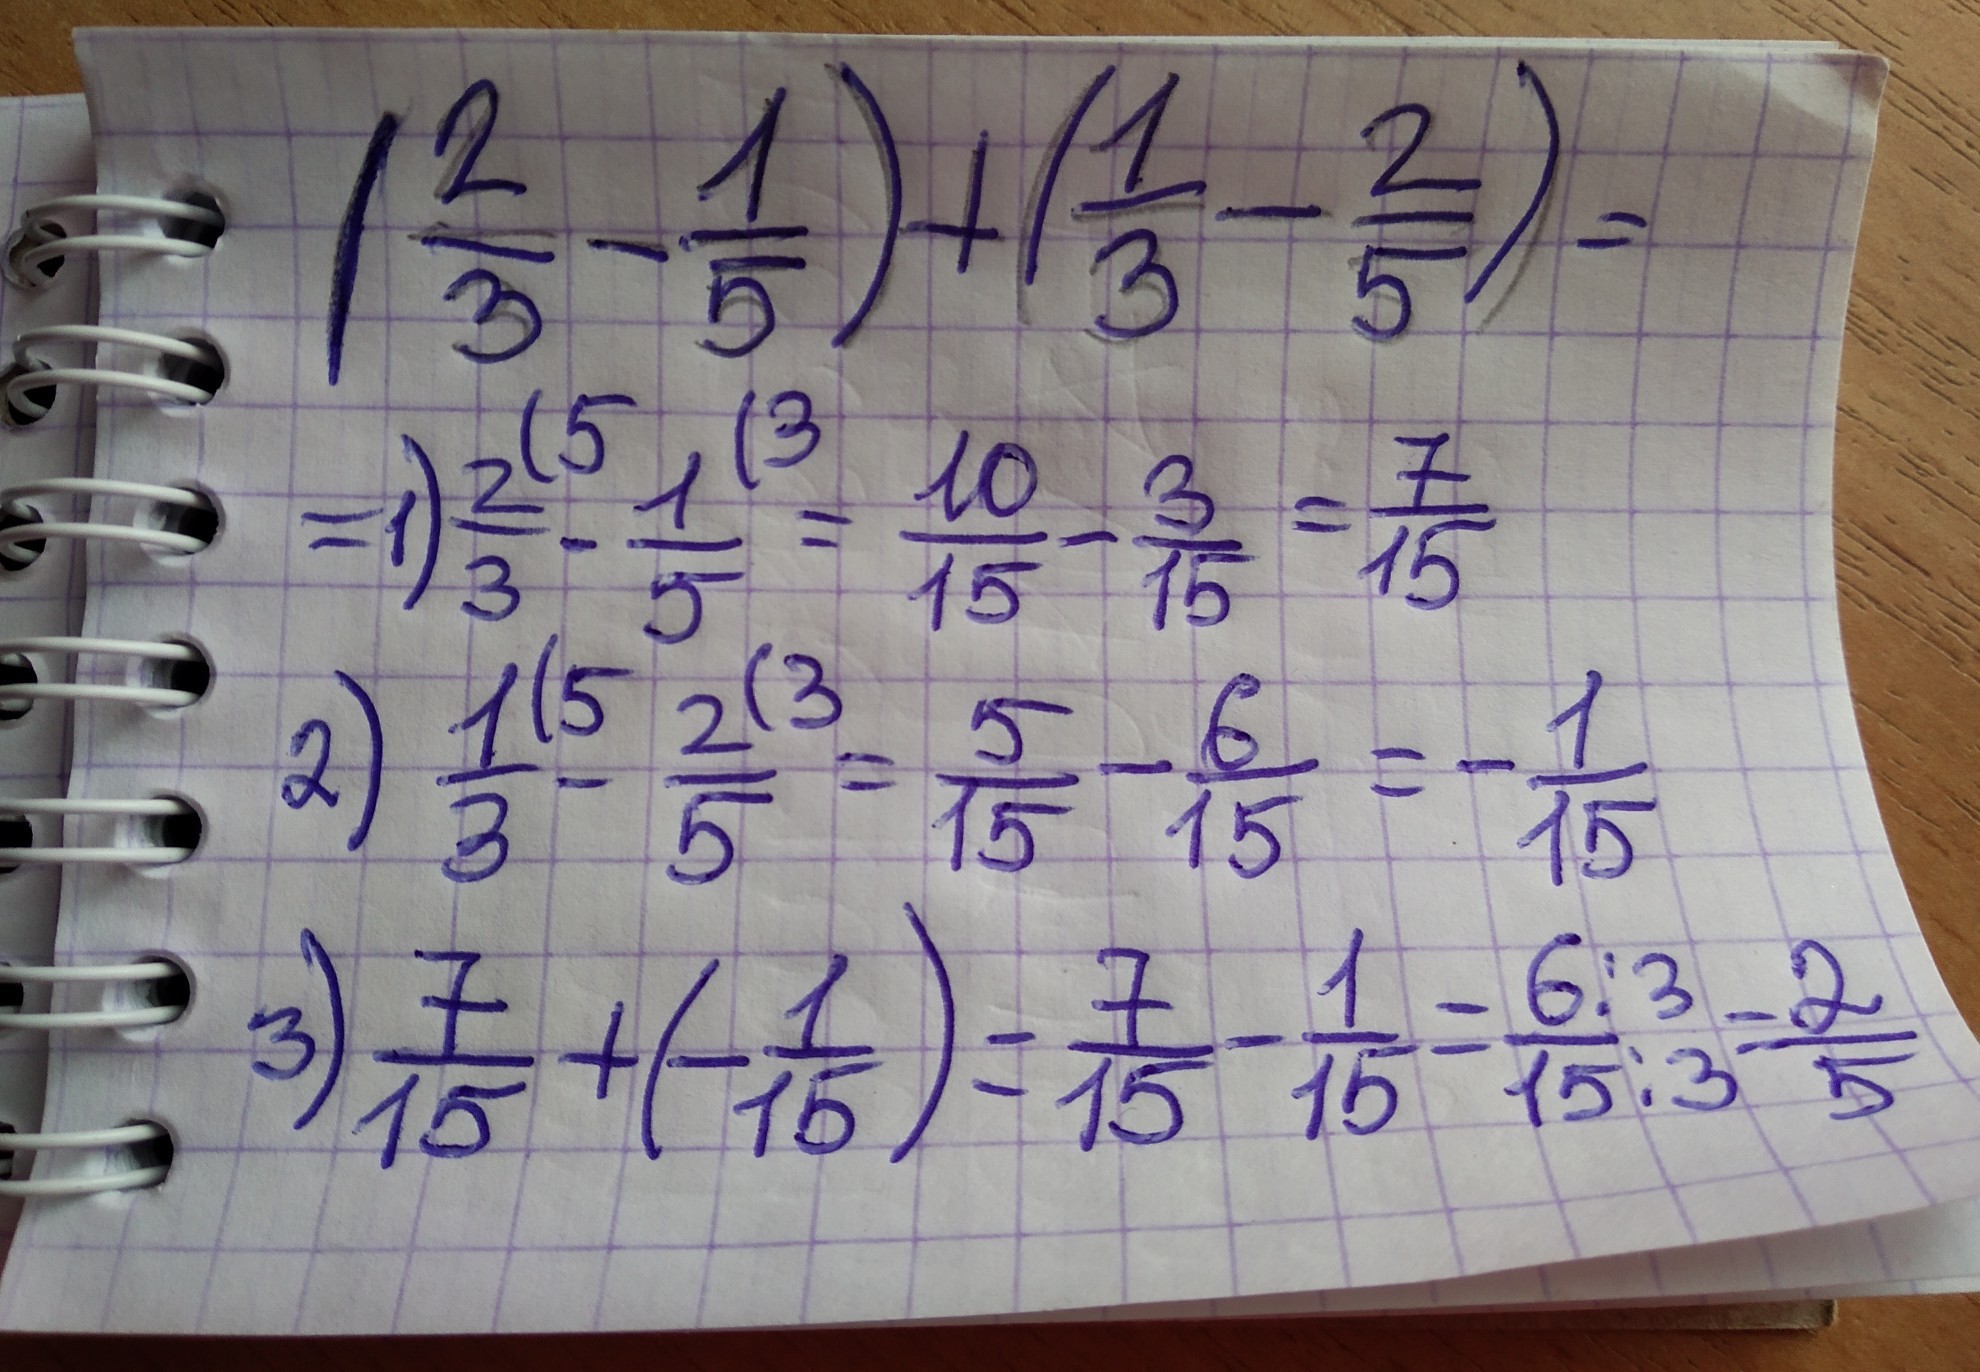 (2/3 - 1/5) + (1/3 - 2/5) =
= 1) 2/3 (5 - 1/5 (3 = 10/15 - 3/15 = 7/15
2) 1/3 (5 - 2/5 (3 = 5/15 - 6/15 = - 1/15
3) 7/15 + (- 1/15) = 7/15 - 1/15 = 6:3/15:3 = 2/5